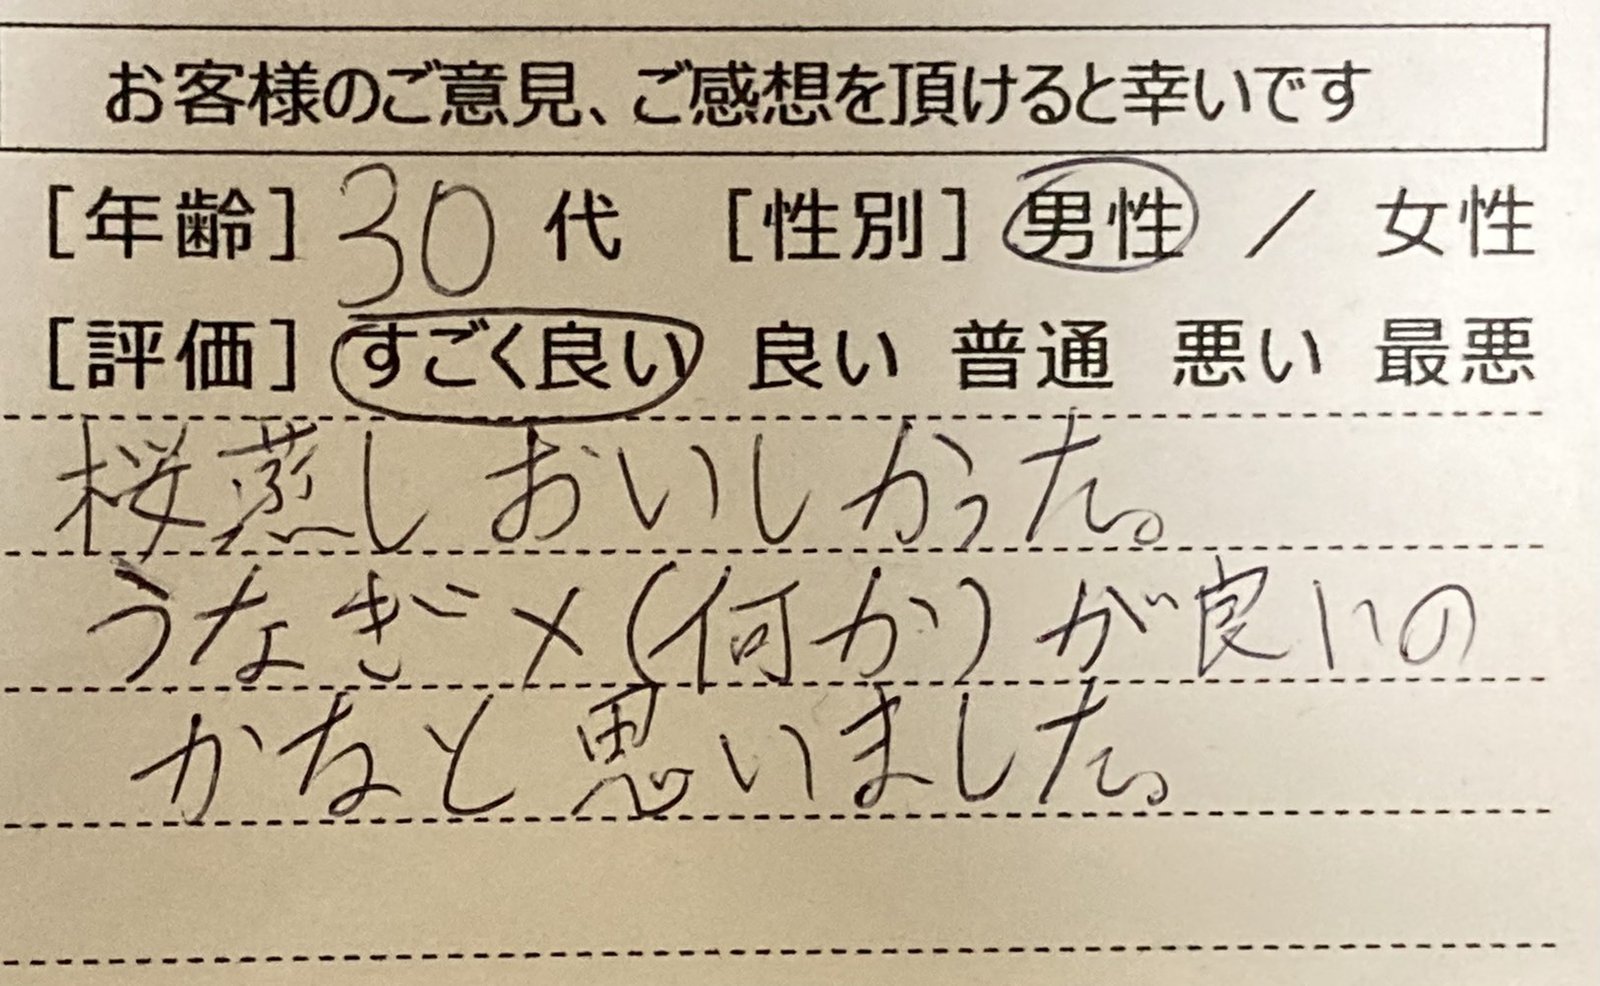 お客様のご意見、ご感想を頂けると幸いです
[年齢] 30 代 [性別] 男性 / 女性
[評価] すごく良い 良い 普通 悪い 最悪
桜蒸しおいしかった。
うなぎ×(何か)が良いの
かなと思いました。